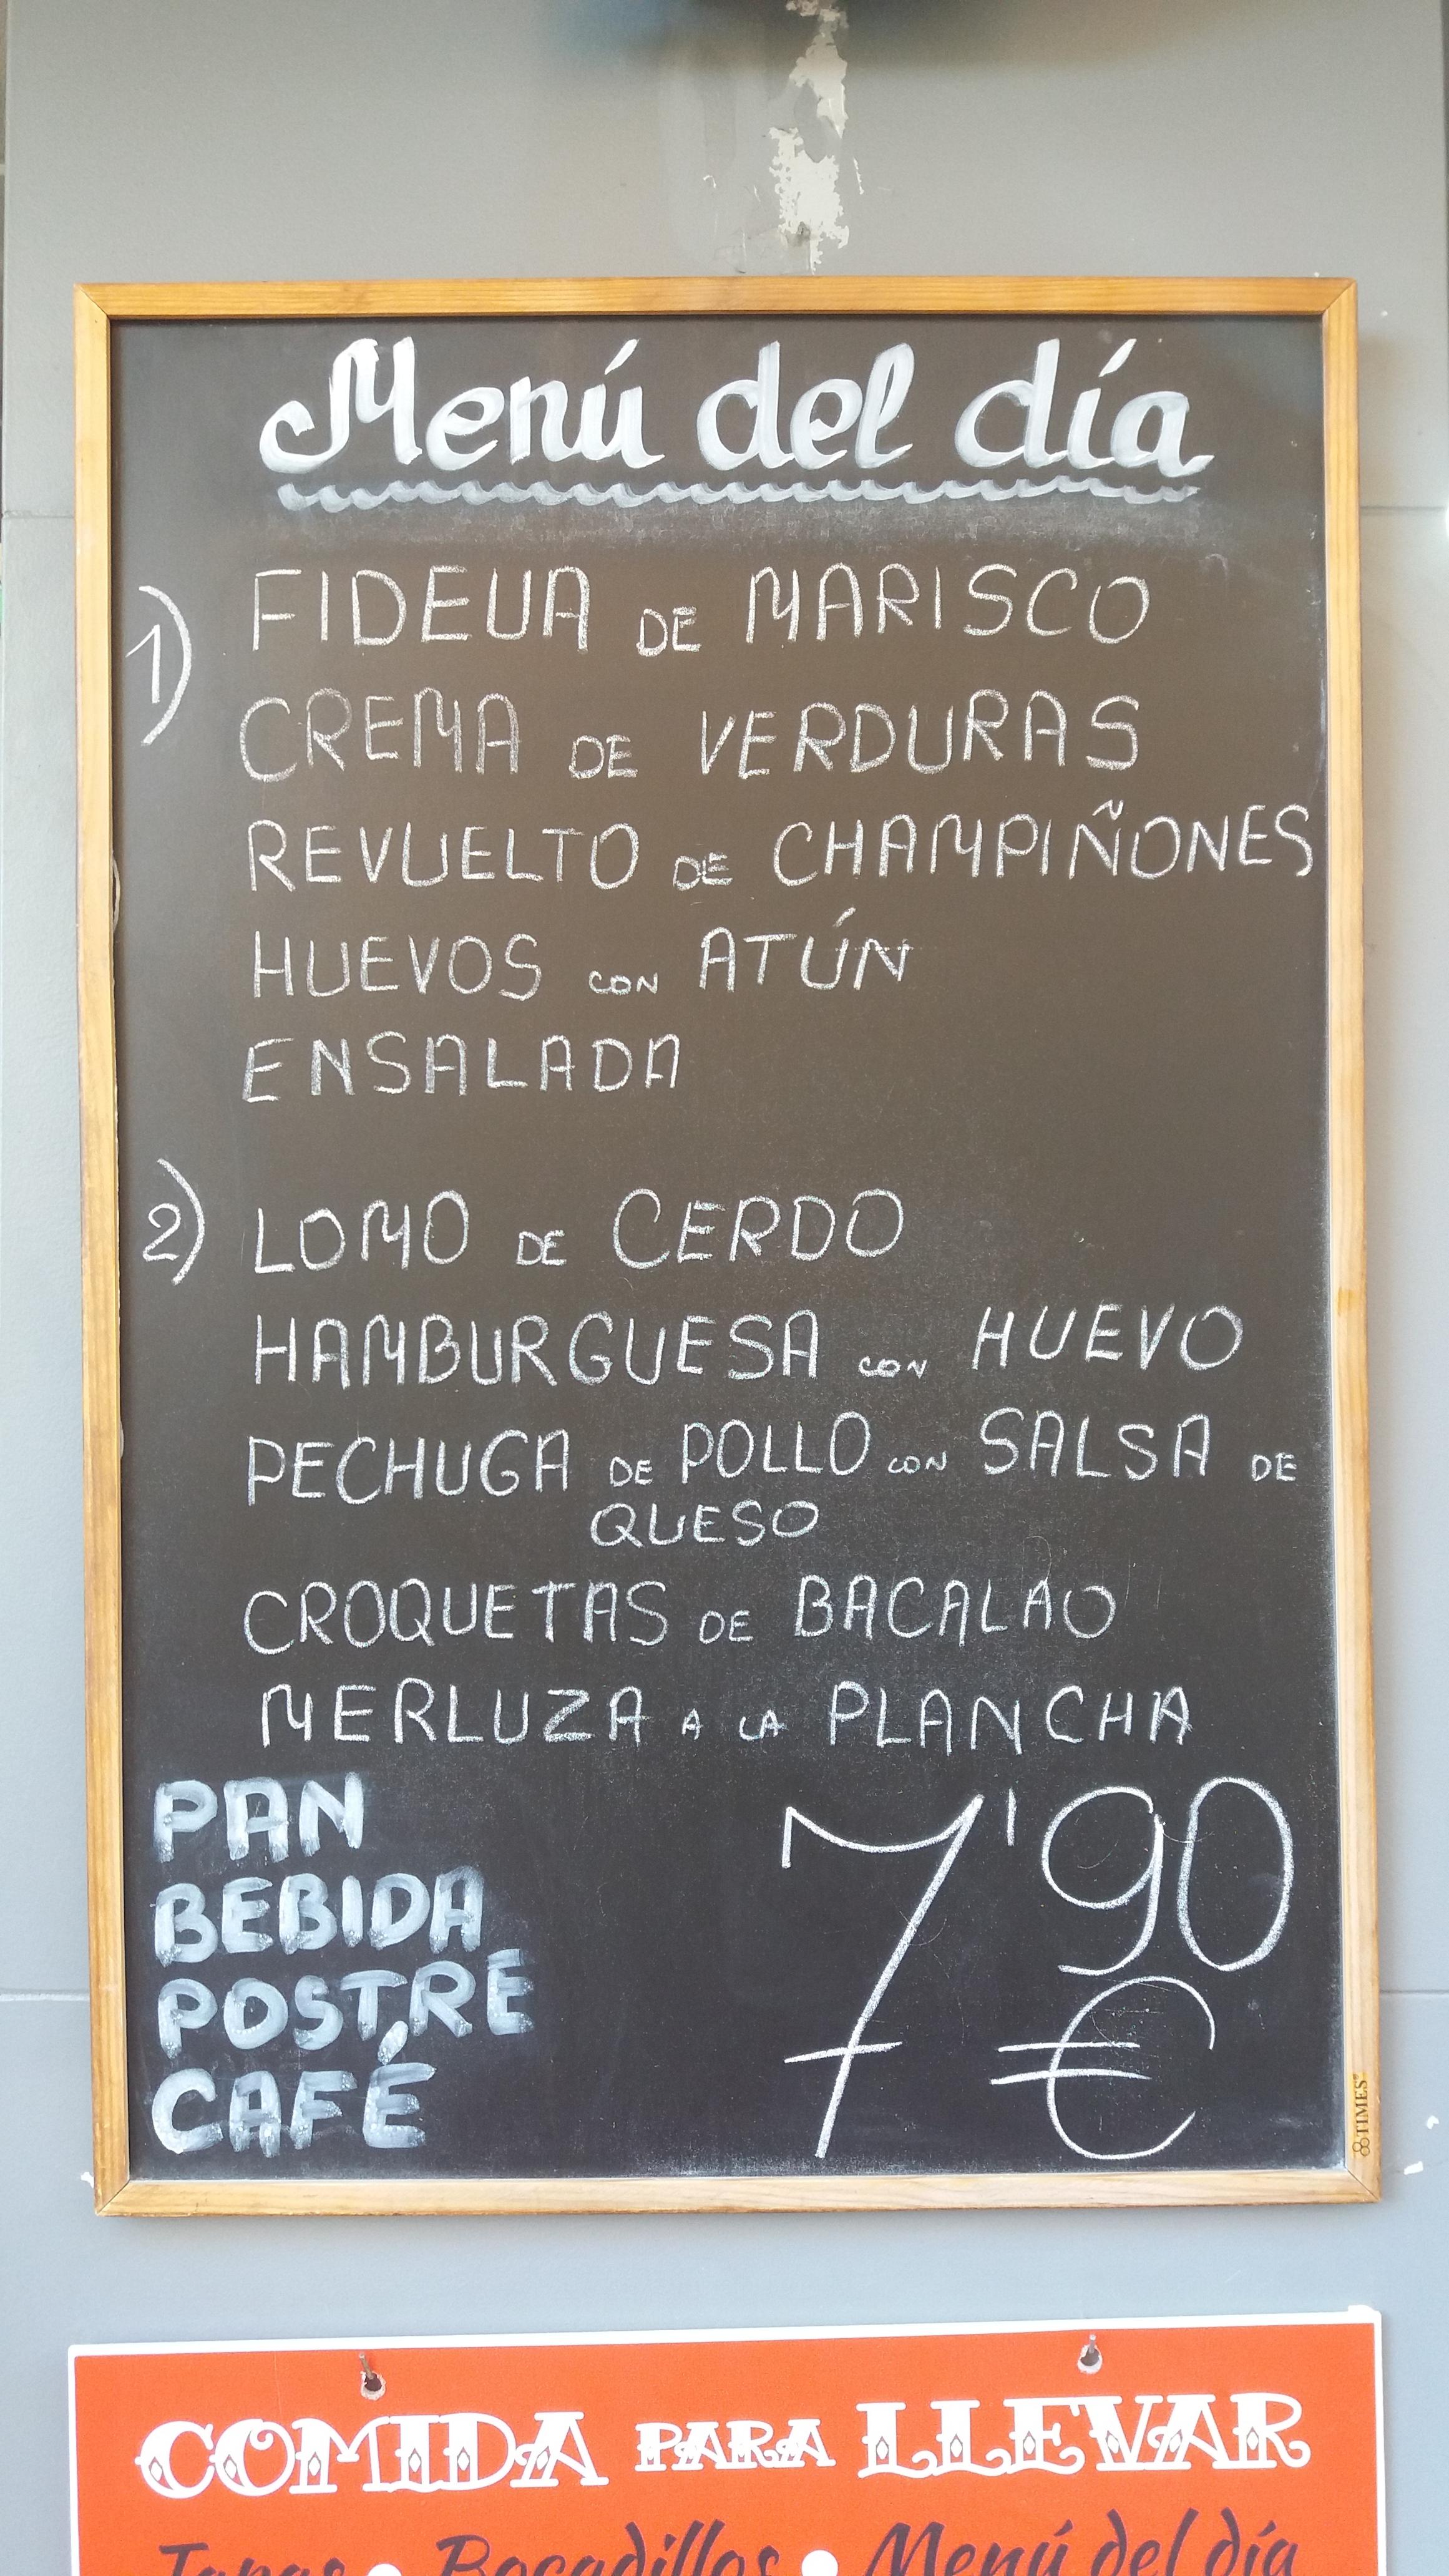 Menú del día
1) FIDEUA DE MARISCO
CREMA DE VERDURAS
REVUELTO DE CHAMPIÑONES
HUEVOS CON ATÚN
ENSALADA
2) LOMO DE CERDO
HAMBURGUESA CON HUEVO
PECHUGA DE POLLO CON SALSA DE
QUESO
CROQUETAS DE BACALAO
MERLUZA A LA PLANCHA
PAN
BEBIDA
POSTRE
CAFÉ
7'90
€
TIMES
COMIDA PARA LLEVAR
Tapas • Bocadillos • Menú del día